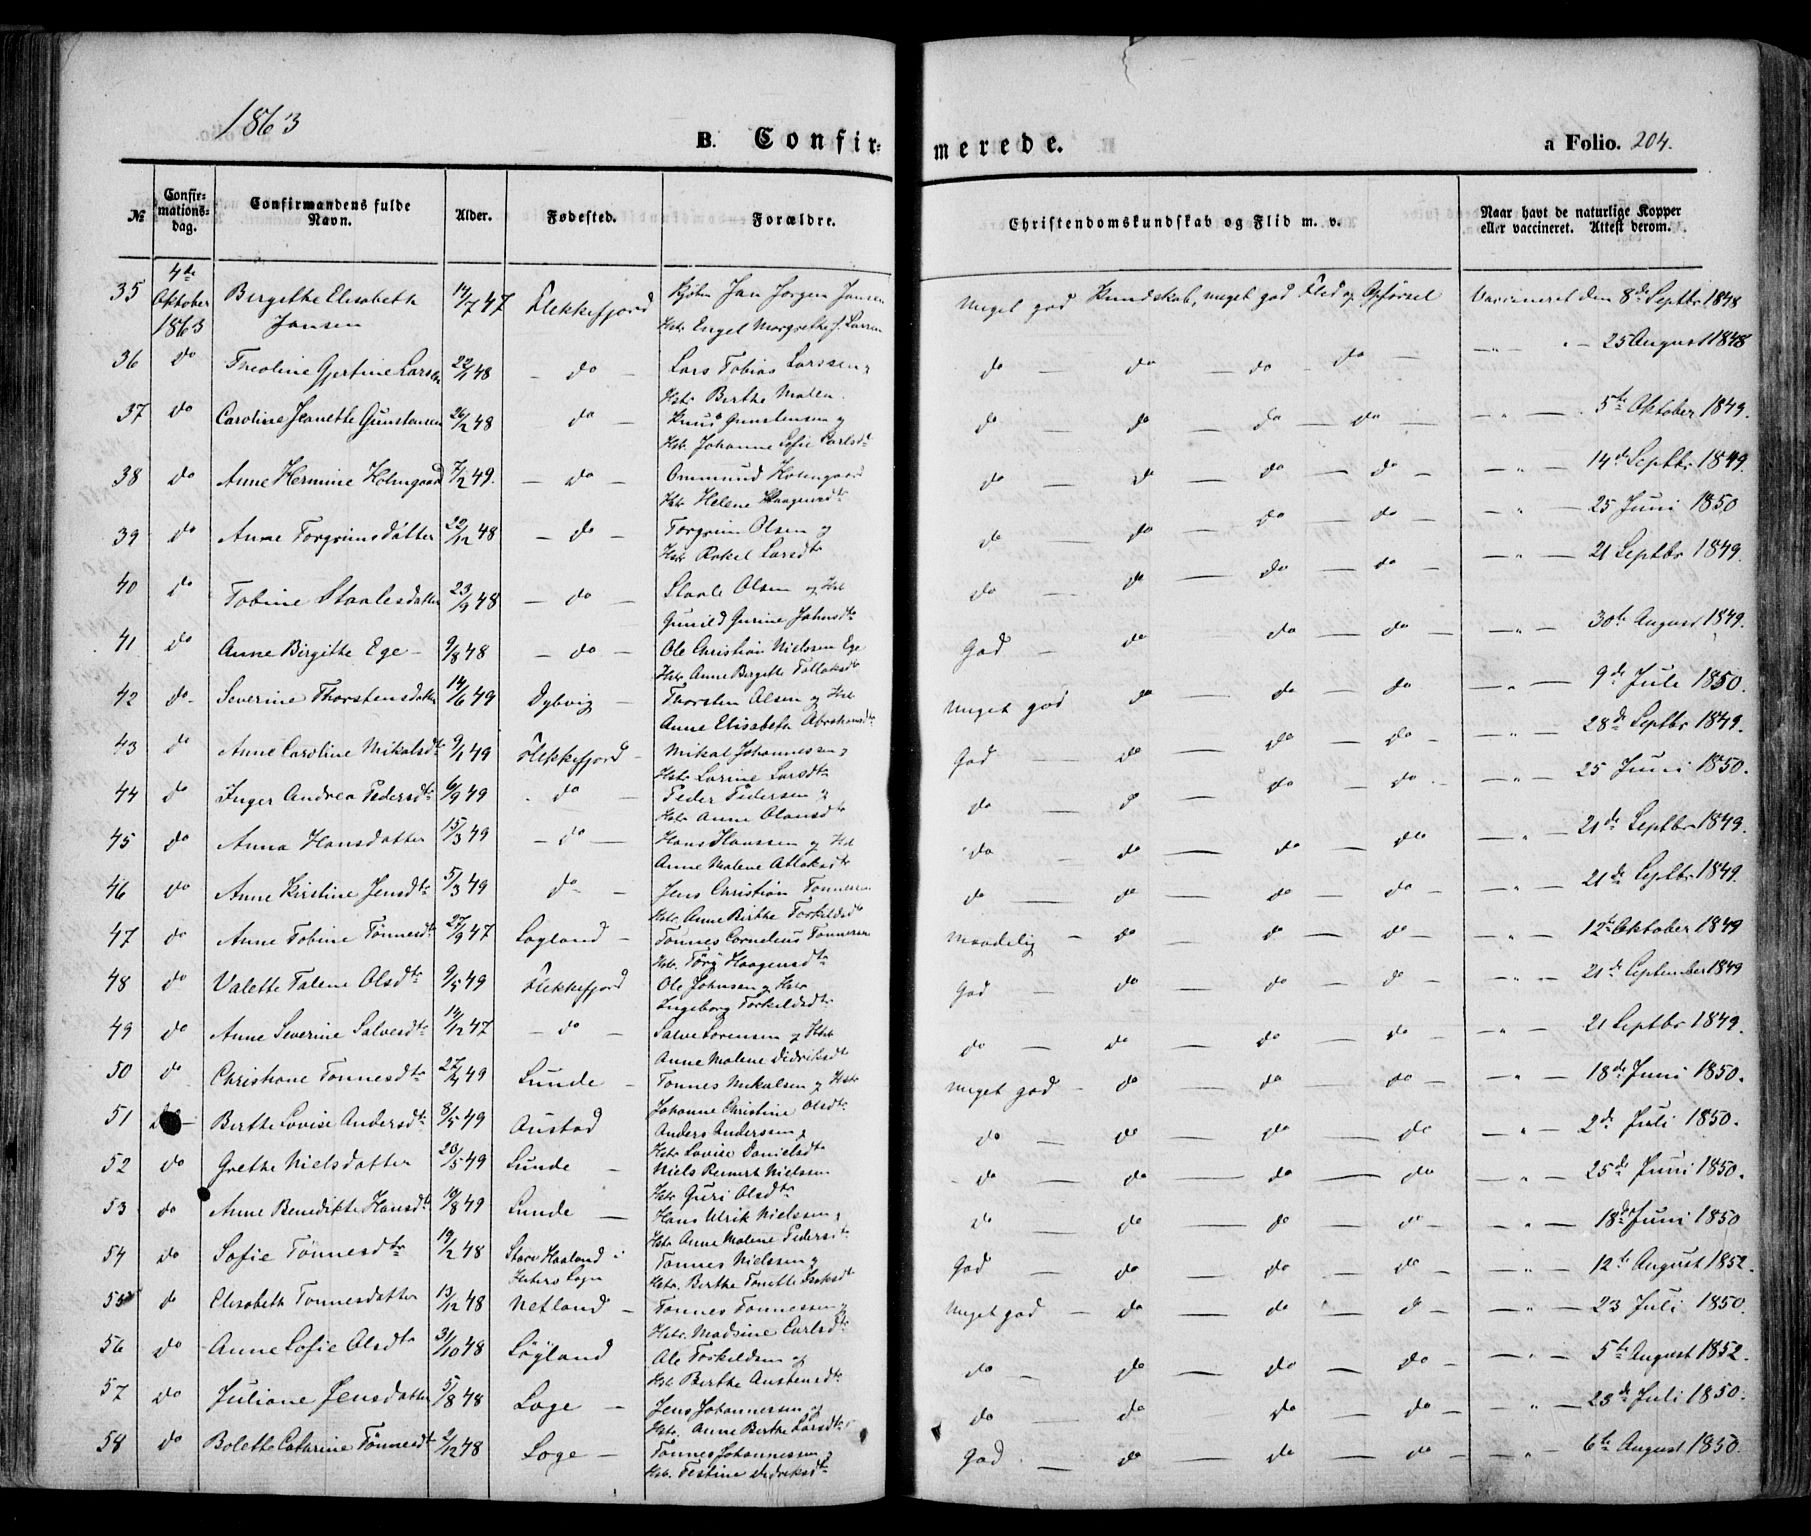 1863
B. Confirmerede. a Folio. 204.
№ Confirmationsdag. Confirmandens fulde Navn. Alder. Fødested. Forældre. Christendomskundskab og Flid m. v. Naar havt de naturlige Kopper eller vaccineret. Attest derom.
35 4de Oktober 1863 Birgithe Elisabeth Jansen 14/7 47 Flekkefjord Kjøbm Jan Jørgen Jansen Hstr Engel Margrethe f. Larsen Meget god Kundskab, meget god Flid og Opførsel Vaccineret den 8de Septbr 1848
36 do Theoline Gjertine Larsen 22/1 48 - do - Lars Tobias Larssen, Hstr Berthe Malen. do do - do do - -"- "- 25 August 1848
37 do Caroline Jeanette Gunstensen 26/2 48 do Knud Gunstensen og Hstr. Johanne Sofie Carlsdtr do - do - do - do -"- 5te Oktober 1849.
38 do Anne Hermine Holmgaard 7/2 49. - do - Ommund Holmgaard Hstr Helene Haagensdtr do - do - do - do - -"- 14de Septbr 1849.
39 do Anne Torgrimsdatter 22/12 48 - do - Torgrim Olsen og Hstr Rakel Larsdtr do - do - do - do - -"- 25 Juni 1850
40 do Tobine Staalesdatter 23/9 48 - do - Staale Olsen og Hst Gunild Gurine Johnsdtr do - do - do - do -"- 21 Septbr 1849.
41 do Anne Birgithe Ege - 9/8 48 - do - Ole Christian Nielssen Ege Hstr Anne Birgithe Tollaksdtr God do do - do - -"- 30te August 1849.
42 do Severine Thorstensdatter 14/6 49 Dybvig - Thorsten Olsen og Hst Anne Elisabeth Abrahamsdtr Meget god do - do - do -"- 9de Juli 1850.
43 do Anne Caroline Mikalsdtr 9/1 49 Flekkefjord - Mikal Johannessen, Hstr Larine Larsdtr God - do - do - do - -"- 28de Septbr 1849.
44 do Inger Andrea Pedersdtr 6/9 49 do - Peder Pedersen og Hstr Anne Olausdtr do - do - do - do -"- 25 Juni 1850.
45 do Anna Hansdatter 15/3 49 - do - Hans Hanssen og Hst Anne Malene Atlaksdtr do - do - do - do -"- 21de Septbr 1849.
46 do Anne Kirstine Jensdtr 5/3 49 do - Jens Christian Tønnesen Hstr. Anne Birthe Torkildsdtr do - do - do - do -"- 21de Septbr 1849.
47 do Anne Tobine Tønnesdtr 27/9 47 Løgland - Tønnes Cornelius Tønnesen Hstr. Tørø Haagensdtr Maadelig - do - do - do - -"- 12te Oktober 1849
48 do Valette Talene Olsdtr 9/5 49 Flekkefjord Ole Johnsen og Hstr Ingeborg Torkildsdtr God - do - do - do -"- 21de September 1849
49 do Anne Severine Salvesdtr 14/12 47 - do - Salve Sørensen og Hstr Anne Malene Didriksdtr do - do - do - do -"- 21 Septbr 1849.
50 do Christiane Tønnesdtr 27/4 49 Lunde - Tønnes Mikalsen og Hstr Johanne Christine Olsdtr Meget god - do - do do - -"- 18de Juni 1850.
51 do - Berthe Lovise Andersdtr. 8/5 49 Austad Anders Anderssen, Hstr Lovise Danielsdtr do - do - do - do -"- 2de Juli 1850.
52 do Grethe Nielsdatter 20/5 49 Lunde - Niels Reinert Nielsen Hstr Guri Olsdtr do - do - do - do -"- 25de Juni 1850.
53 do Anne Benedikte Hansdtr 19/8 49 Lunde - Hans Ulrik Nielssen, Hstr Anne Malene Pedersdtr do - do - do - do - -"- 18de Juni 1850
54 do Sofie Tønnesdtr 19/2 48 Store Haaland i Hiters Sogn Tønnes Nielssen og Hstr. Berthe Tonette Isaksdtr God - do - do - do - -"- 12te August 1852.
55 do Elisabeth Tønnesdatter 13/12 48 Netland - Tønnes Tønnessen og Hstr. Madsine Carlsdtr Meget god - do - do - do - -"- 23 Juli 1850.
56 do Anne Sofie Olsdtr 31/10 48 Løgland Ole Torkildsen og Hst Berthe Austensdtr do - do - do - do - -"- 5te August 1852.
57 do Juliane Jensdatter 5/8 48 Loge - Jens Johannesen og Hstr. Anne Berthe Larsdtr do - do do - do - -"- 23de Juli 1850.
58 do Bolette Cathrine Tønnesdtr 2/12 48 Loge - Tønnes Johannessen og Hstr. Testine Didriksdtr God - do - do - do - -"- 6te August 1850.